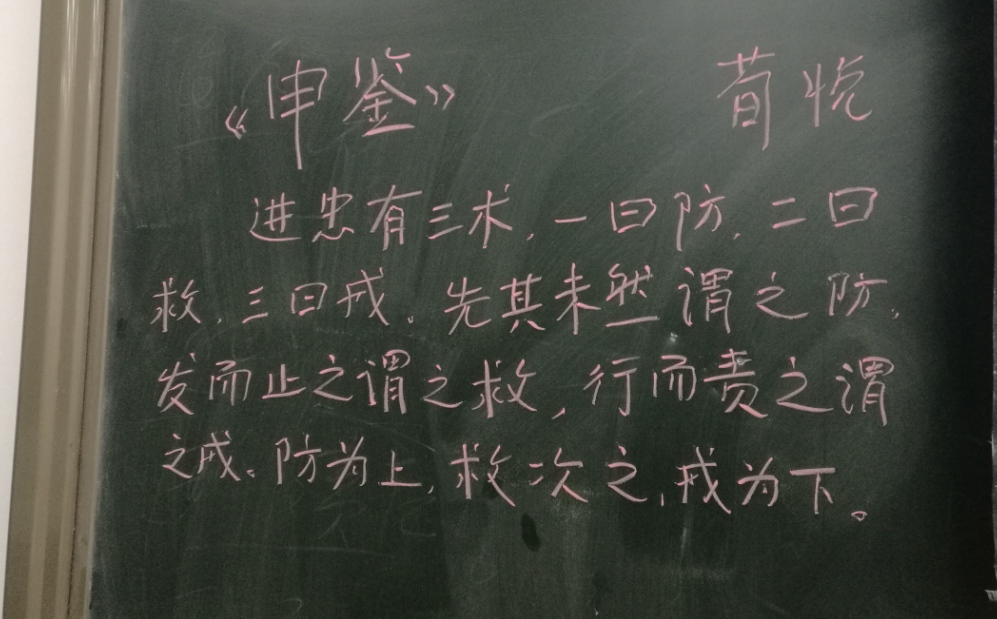 《申鉴》 荀悦
进忠有三术，一曰防，二曰
救，三曰戒。先其未然谓之防，
发而止之谓之救，行而责之谓
之戒。防为上，救次之，戒为下。